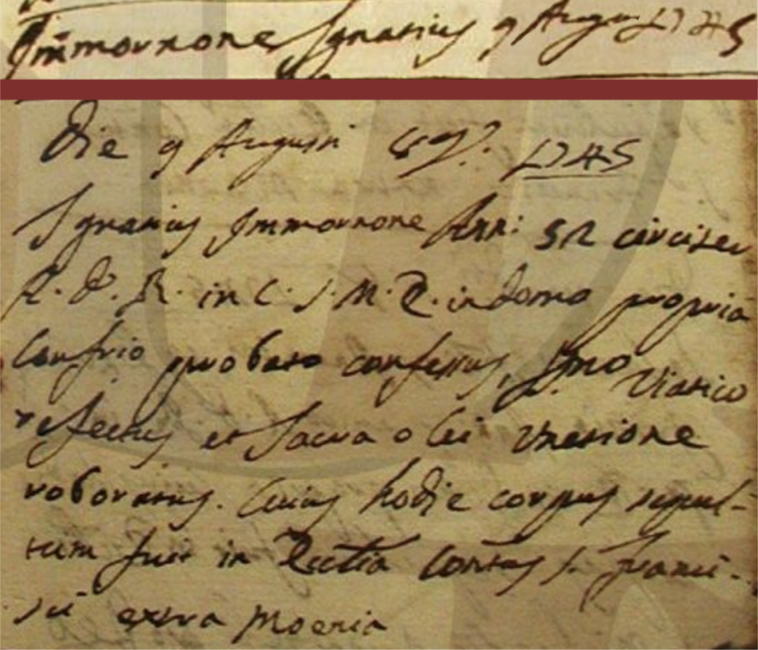 Immornone Ignatius 9 Augu 1745
Die 9 Augusti 1745
Ignatius Immornone Ann: 52 circiter
in C. S. M. E. in domo propria
Confrio probato confessus, SSmo Viatico
refectus et Sacra olei unctione
roboratus. Cuius hodie corpus sepul-
tum fuit in Ecctia Contus S. Franci-
sci extra moenia